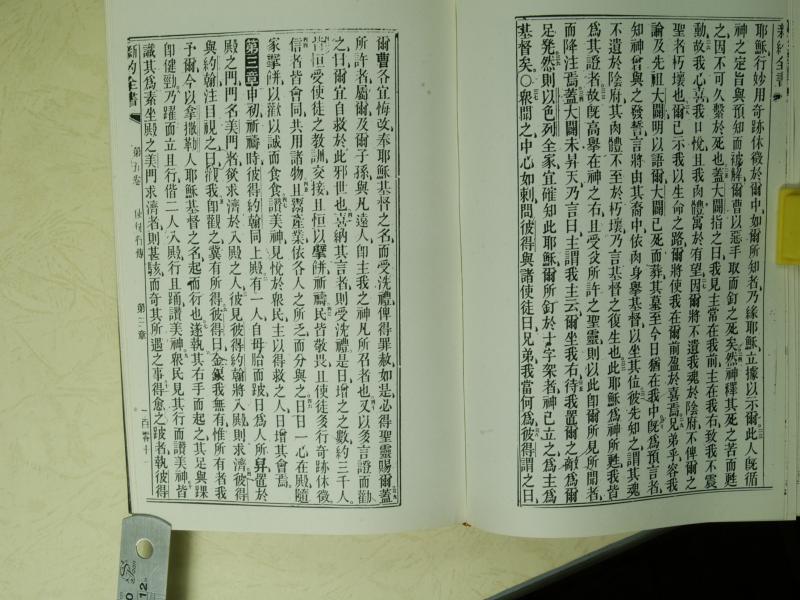 新約全書
耶穌行妙用奇跡休徵於爾中如爾所知者乃緣耶穌立據以示爾此人旣循
神之定旨與預知而被解爾曹以惡手取而釘之死矣然神釋其死之苦而甦
之因不可久繫於死也蓋大闢指之曰我見主常在我前主在我右致我不震
動故我心喜我口悅且我肉體寓於有望因爾將不遺我魂於陰府不俾爾之
聖者朽壞也爾已示我以生命之路爾將使我在爾前盈於喜焉兄弟乎容我
論及先祖大闢明以語爾大闢已死而葬其墓至今日猶在我中旣爲預言者
知神曾與之發誓言將由其裔中依肉身舉基督以坐其位彼先知之謂其魂
不遺於陰府其肉體不至於朽壞乃言基督之復生也此耶穌爲神所甦我皆
爲其證者故旣高舉在神之右且受父所許之聖靈則以此卽爾所見所聞者
而降注焉蓋大闢未昇天乃言曰主謂我主云爾坐我右待我置爾之敵爲爾
足凳然則以色列全家宜確知此耶穌爾所釘於十字架者神已立之爲主爲
基督矣〇衆聞之中心如刺問彼得與諸使徒曰兄弟我當何爲彼得謂之曰
爾曹各宜悔改奉耶穌基督之名而受洗禮俾得罪赦如是必得聖靈賜爾蓋
所許者屬爾及爾子孫與凡遠人卽主我之神凡所召者也又以多言證而勸
之曰爾宜自救於此邪世也喜納其言者則受洗禮是日增之之數約三千人
皆恒受使徒之教訓交接且恒以擘餅祈禱民皆敬畏且使徒多行奇跡休徵
信者皆會同共用諸物且鬻產業依各人之所乏而分與之日日一心在殿隨
家擘餅以歡以誠而食食讚美神見悅於衆民主以得救之人日增其會焉
第三章申初祈禱時彼得約翰同上殿有一人自母胎而跛日爲人所舁置於
殿之門門名美門者欲求濟於入殿之人彼見彼得約翰將入殿則求濟彼得
與約翰注目視之曰觀我卽觀之冀有所得彼得曰金銀我無有惟所有者我
予爾今以拿撒勒人耶穌基督之名起而行也遂執其右手而起之其足與踝
卽健勁乃躍而立且行偕二人入殿行且踊讚美神衆民見其行而讚美神皆
識其爲素坐殿之美門求濟者則甚駭而奇其所遇之事得愈之跛者執彼得
新約全書 第五卷 使徒行傳 第三章 一百零十